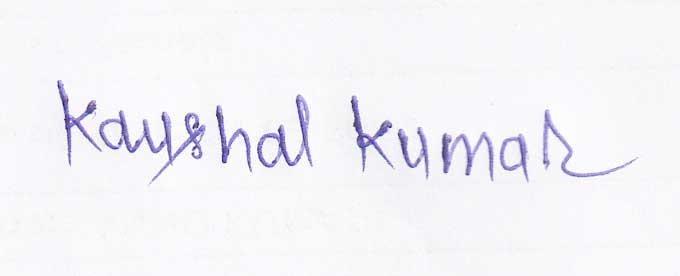 Kayshal Kumar